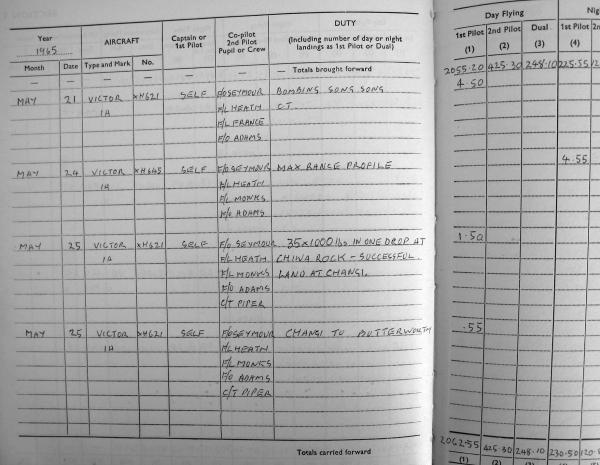 Year
1965
AIRCRAFT
Captain or
1st Pilot
Co-pilot
2nd Pilot
Pupil or Crew
DUTY
(Including number of day or night
landings as 1st Pilot or Dual)
Month Date Type and Mark No.
— — — — — — — Totals brought forward
MAY 21 VICTOR XH621 SELF F/O SEYMOUR BOMBING SONG SONG
1A F/L HEATH C.T.
F/L FRANCE
F/O ADAMS
MAY 24 VICTOR XH645 SELF F/O SEYMOUR MAX RANGE PROFILE
1A F/L HEATH
F/L MONKS
F/O ADAMS
MAY 25 VICTOR XH621 SELF F/O SEYMOUR 35x1000 lbs IN ONE DROP AT
1A F/L HEATH CHINA ROCK – SUCCESSFUL.
F/L MONKS LAND AT CHANGI.
F/O ADAMS
C/T PIPER
MAY 25 VICTOR XH621 SELF F/O SEYMOUR CHANGI TO BUTTERWORTH
1A F/L HEATH
F/L MONKS
F/O ADAMS
C/T PIPER
Totals carried forward
Day Flying
1st Pilot 2nd Pilot Dual 1st Pilot
(1) (2) (3) (4)
2055.20 425.30 248.10 225.55
4.50
4.55
1.50
.55
2062.55 425.30 248.10 230.50
(1) (2) (3) (4)